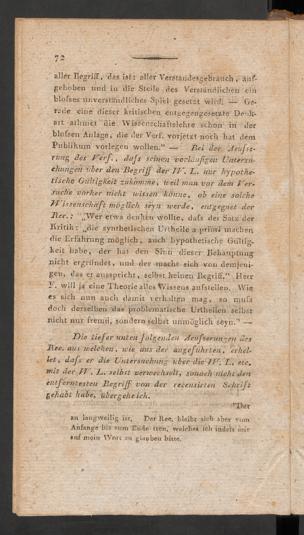 72
aller Begriff, das ist: aller Verstandesgebrauch, auf-
gehoben und in die Stelle des Verständlichen ein
blosses unverständliches Spiel gesetzt wird. — Ge-
rade eine dieser kritischen entgegengesetzte Denk-
art athmet die Wissenschaftslehre schon in der
blossen Anlage, die der Verf. vorjetzt noch hat dem
Publikum vorlegen wollen." — Bei der Aeusse-
rung des Verf., dass seinen vorläufigen Untersu-
chungen über den Begriff der W. L. nur hypothe-
tische Gültigkeit zukomme, weil man vor dem Ver-
suche vorher nicht wissen könne, ob eine solche
Wissenschaft möglich seyn werde, entgegnet der
Rec.: "„Wer etwa denken wollte, dass der Satz der
Kritik: „die synthetischen Urtheile a priori machen
die Erfahrung möglich, auch hypothetische Gültig-
keit habe, der hat den Sinn dieser Behauptung
nicht ergründet, und der macht sich von demjeni-
gen, das er ausspricht, selbst keinen Begriff." Herr
F. will ja eine Theorie alles Wissens aufstellen. Wie
es sich nun auch damit verhalten mag, so muss
doch derselben das problematische Urtheilen selbst
nicht nur fremd, sondern selbst unmöglich seyn." —
Die tiefer unten folgenden Aeusserungen des
Rec. aus welchen, wie aus der angeführten, erhel-
let, dass er die Untersuchung über die W. L. etc.
mit der W. L. selbst verwechselt, sonach nicht den
entferntesten Begriff von der recensirten Schrift
gehabt habe, übergehe ich.
"Der
zu langweilig ist. Der Rec. bleibt sich aber vom
Anfange bis zum Ende treu, welches ich indess mir
auf mein Wort zu glauben bitte.